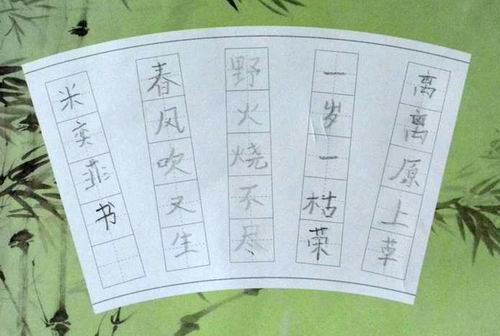 离离原上草
一岁一枯荣
野火烧不尽
春风吹又生
米奕菲书